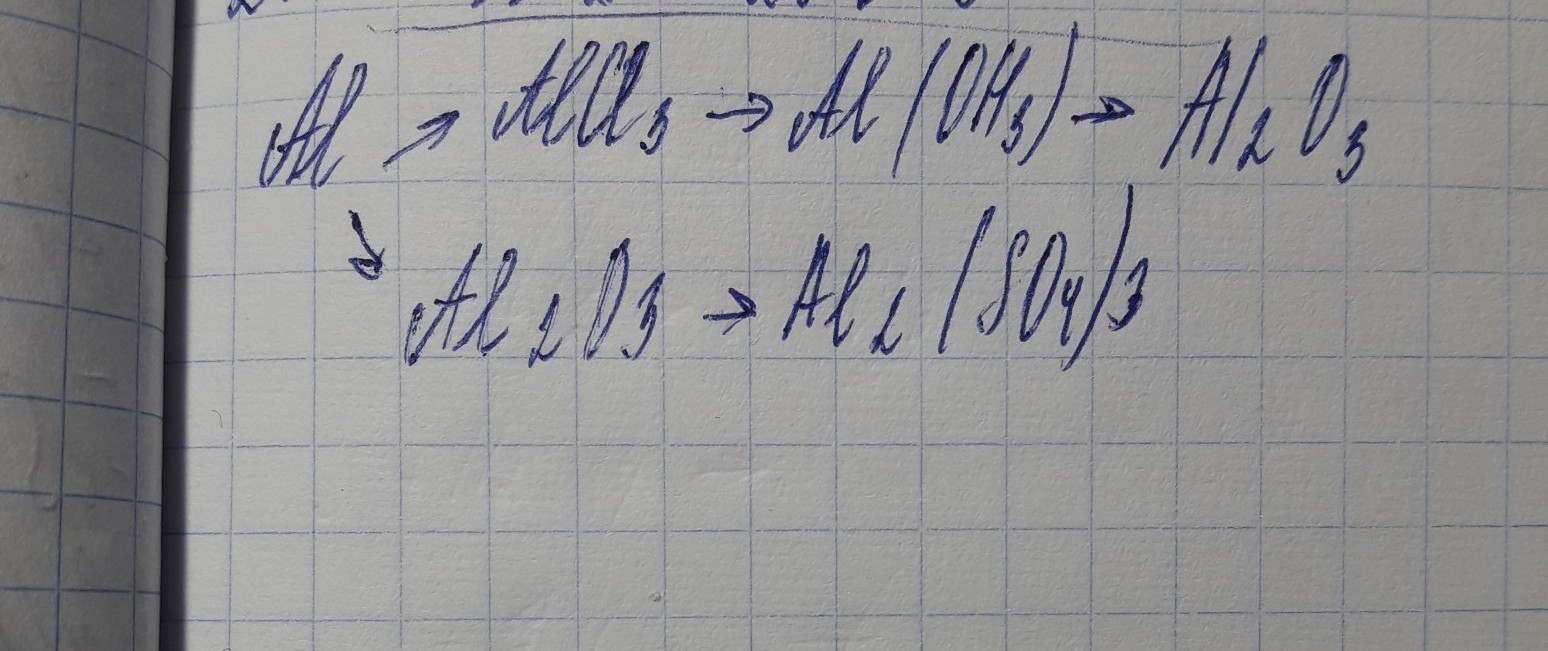 Al ↗ AlCl3 → Al(OH3) → Al2O3
↘ Al2O3 → Al2(SO4)3